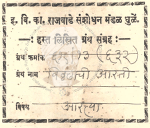 इ. वि. का. राजवाडे संशोधन मंडळ धुळे.
हस्त लिखित ग्रंथ संग्रह
ग्रंथ क्रमांक (६३२)
ग्रंथ नाम आरती
विषय आरत्या.